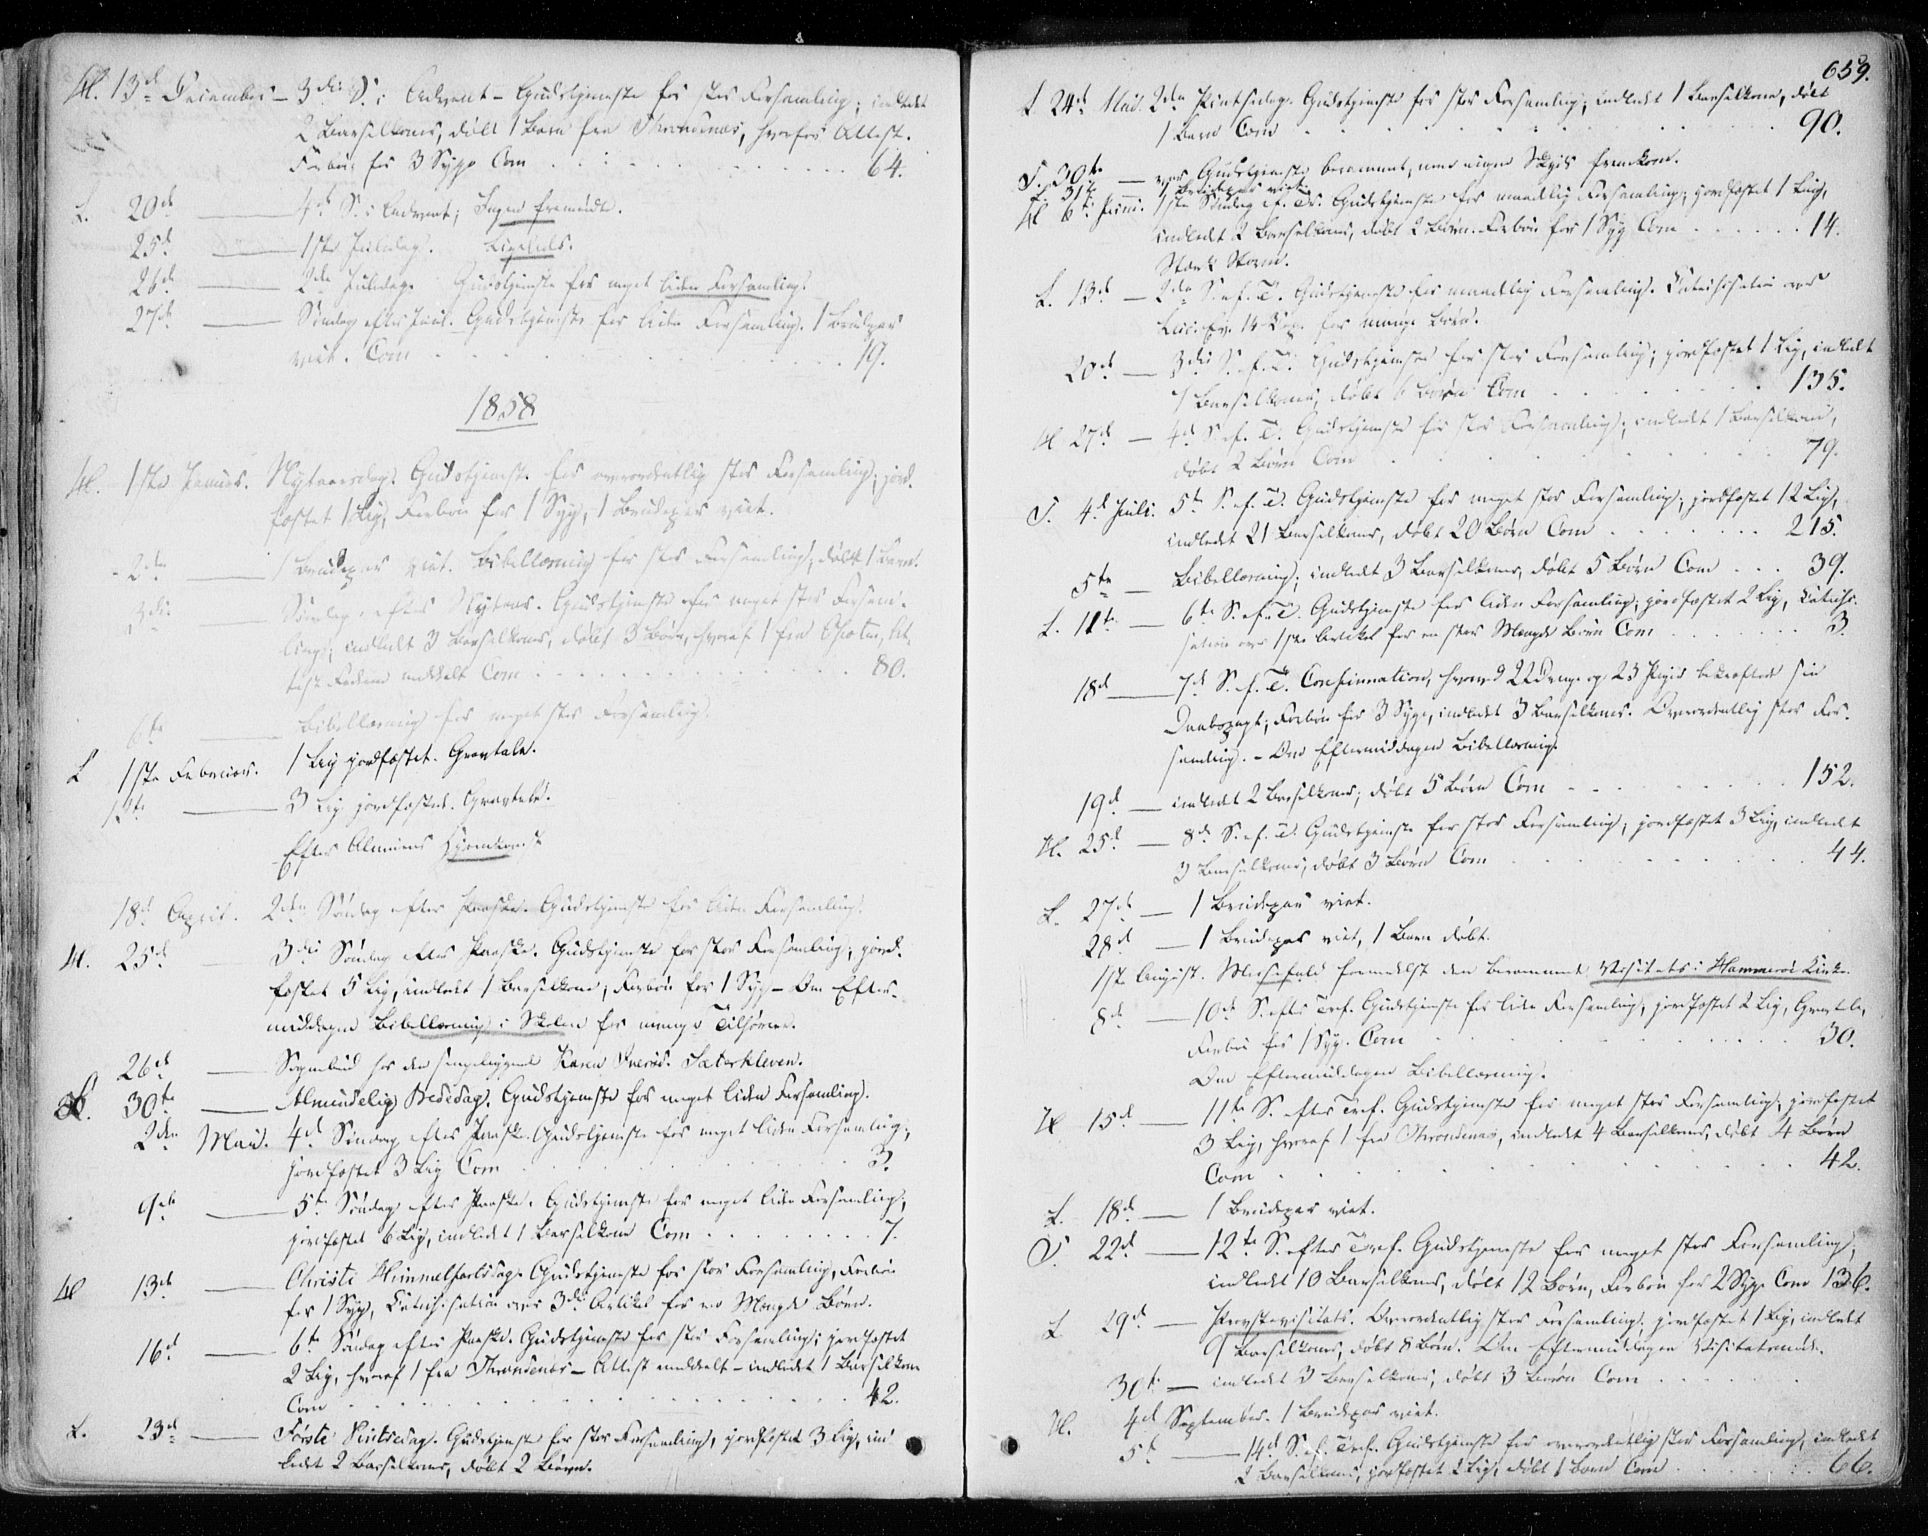 Hl. 13de December – 3die S. i Advent – Gudstjeneste for stor Forsamling; indledt
2 Barselkoner, døbt 1 Barn fra Throndenæs, hvorfor Attest.
Forbøn for 3 Syge Com . . . 64.
L. 20de — 4de S. i Advent; Ingen fremmødte.
25de — 1ste Juledag. Ligeledes.
26de — 2den Juledag. Gudstjeneste for meget liden Forsamling.
27de — Søndag efter Juul. Gudstjeneste for liden Forsamling. 1 Brudepar
viet. Com . . . 19.
1858
Hl. 1ste Januar. Nytaarsdag. Gudstjeneste for overordentlig stor Forsamling; jord-
fæstet 1 Lig, Forbøn for 1 Syg, 1 Brudepar viet.
2den — 1 Brudepar viet. Bibellæsning for stor Forsamling; døbt 1 Barn.
3die — Søndag efter Nytaar. Gudstjeneste for meget stor Forsam-
ling; indledt 3 Barselkoner, døbt 3 Børn, hvoraf 1 fra
meddelt Com . . . 80.
6te — Bibellæsning for meget stor Forsamling.
L 1ste Februar. 1 Lig jordfæstet. Gravtale.
12te — 3 Lig jordfæstet. Gravtale.
Efter Almuens Hjemkomst
18de April. 2den Søndag efter Paaske. Gudstjeneste for liden Forsamling.
Hl. 25de — 3die Søndag efter Paaske. Gudstjeneste for stor Forsamling; jord-
fæstet 5 Lig, indledt 1 Barselkone, Forbøn for 1 Syg – Om Efter-
middagen Bibellæsning i Skolen for mange Tilhørere.
26de — Sognebud hos den sengeliggende Karen Sæterkleven.
L. 30te — Almindelig Bededag. Gudstjeneste for meget liden Forsamling.
2den Mai. 4de Søndag efter Paaske. Gudstjeneste for meget liden Forsamling;
jordfæstet 3 Lig Com . . . 3.
9de — 5te Søndag efter Paaske. Gudstjeneste for meget liden Forsamling;
jordfæstet 6 Lig, indledt 1 Barselkone Com . . . 7.
Hl 13de — Christi Himmelfartsdag. Gudstjeneste for stor Forsamling, Forbøn
for 1 Syg, Catechisation over 3die Artikel for en Mængde Børn.
16de — 6te Søndag efter Paaske. Gudstjeneste for stor Forsamling; jordfæstet
2 Lig, hvoraf 1 fra Throndenæs – Attest meddelt – indledt 1 Barselkone
Com . . . 42.
L. 23de — Første Pintsedag. Gudstjeneste for stor Forsamling, jordfæstet 3 Lig, ind-
ledt 2 Barselkoner, døbt 2 Børn.
659.
L 24de Mai. 2den Pintsedag. Gudstjeneste for stor Forsamling; indledt 1 Barselkone, døbt
1 Barn Com . . . 90.
T. 30te — var Gudstjeneste berammet, men ingen Skyds fremkom.
31te 1 Brudepar viet.
Hl 6te Juni. 1ste Søndag ef. Tr. Gudstjeneste for maadelig Forsamling; jordfæstet 1 Lig,
indledt 2 Barselkoner, døbt 2 Børn. Forbøn for 1 Syg Com . . . 14.
Stærk Storm.
L. 13de — 2den S. ef. T. Gudstjeneste for maadelig Forsamling. Catechisation over
14 Cap. for mange Børn.
20de — 3die S. ef. T. Gudstjeneste for stor Forsamling; jordfæstet 1 Lig, indledt
7 Barselkoner, døbt 6 Børn Com . . . 135.
Hl 27de — 4de S. ef. T. Gudstjeneste for stor Forsamling; indledt 1 Barselkone,
døbt 2 Børn Com . . . 79.
T. 4de Juli. 5te S. ef. T. Gudstjeneste for meget stor Forsamling; jordfæstet 12 Lig,
indledt 21 Barselkoner, døbt 20 Børn Com . . . 215.
5te — Bibellæsning; indledt 3 Barselkoner, døbt 5 Børn Com . . . 39.
L. 11te — 6te S. ef. T. Gudstjeneste for liden Forsamling; jordfæstet 2 Lig, Catechi-
sation over 1ste Artikel for en stor Mængde Børn Com . . . 3.
18de — 7de S. ef. T. Confirmation, hvorved 22 Drenge og 23 Piger bekræftede sin
Daabspagt; Forbøn for 3 Syge, indledt 3 Barselkoner. Overordentlig stor For-
samling. – Om Eftermiddagen Bibellæsning.
19de — indledt 2 Barselkoner; døbt 5 Børn Com . . . 152.
Hl. 25de — 8de S. ef. T. Gudstjeneste for stor Forsamling; jordfæstet 3 Lig, indledt
3 Barselkoner, døbt 3 Børn Com . . . 44.
L. 27de — 1 Brudepar viet.
28de — 1 Brudepar viet, 1 Barn døbt.
1ste August. Messefald formedelst den berammede Visitats i Hammerø Kirke.
8de — 10de S. efter Tref. Gudstjeneste for liden Forsamling, jordfæstet 2 Lig, Gravtale,
Forbøn for 1 Syg. Com . . . 30.
Om Eftermiddagen Bibellæsning.
Hl 15de — 11te S. efter Tref. Gudstjeneste for meget stor Forsamling, jordfæstet
3 Lig, hvoraf 1 fra Throndenæs, indledt 4 Barselkoner, døbt 4 Børn
Com . . . 42.
L. 18de — 1 Brudepar viet.
T. 22de — 12te S. efter Tref. Gudstjeneste for meget stor Forsamling;
indledt 10 Barselkoner, døbt 12 Børn, Forbøn for 2 Syge Com 136.
L 29de — Provstevisitats. Overordentlig stor Forsamling; jordfæstet 1 Lig, indledt
9 Barselkoner, døbt 8 Børn. Om Eftermiddagen Visitatsmøde.
30te — indledt 3 Barselkoner, døbt 3 Børn Com . . .
Hl. 4de September. 1 Brudepar viet.
5te — 14de S. ef. Tref. Gudstjeneste for overordentlig stor Forsamling, indledt
2 Barselkoner, jordfæstet 2 Lig, døbt 1 Barn Com . . . 66.